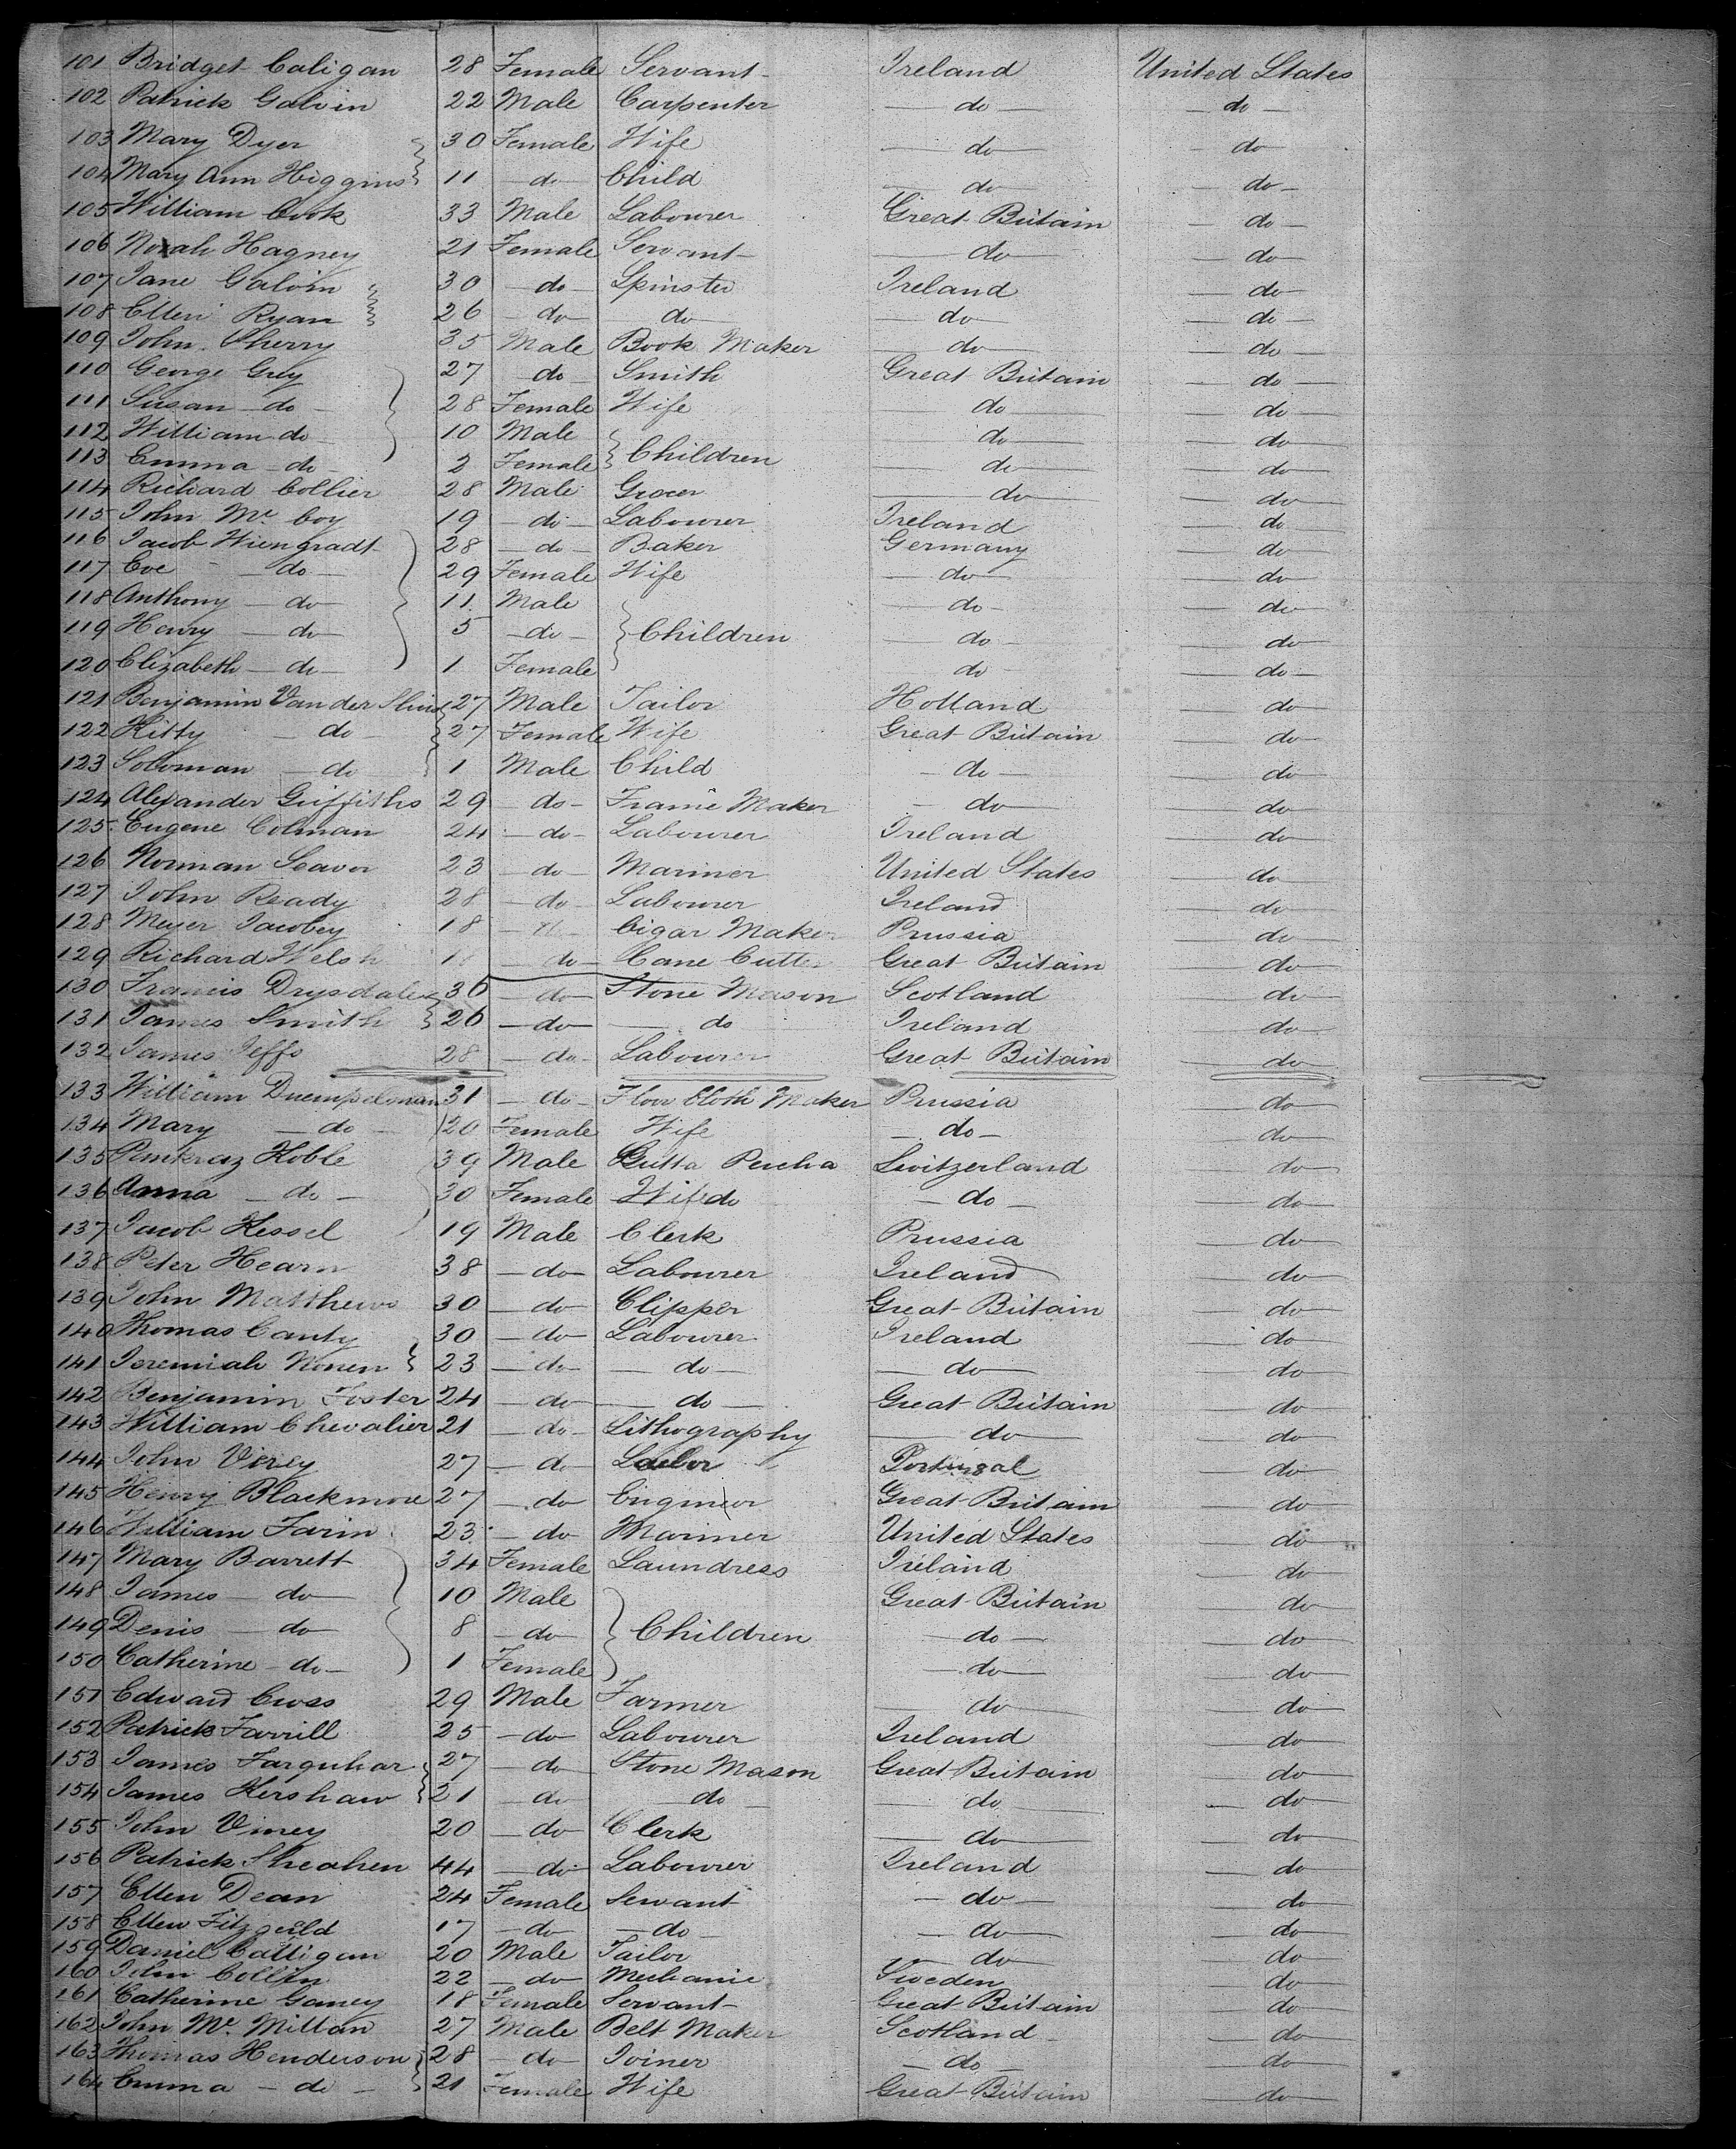 101 Bridget Caligan 28 Female Servant Ireland United States
102 Patrick Galvin 22 Male Carpenter do do
103 Mary Dyer 30 Female Wife do do
104 Mary Ann Higgins 11 do Child do do
105 William Cook 33 Male Labourer Great Britain do
106 Norah Hagney 21 Female Servant do do
107 Jane Galvin 30 do Spinster Ireland do
108 Ellen Ryan 26 do do do do
109 John Sherry 35 Male Book Maker do do
110 George Grey 27 do Smith Great Britain do
111 Susan do 28 Female Wife do do
112 William do 10 Male do do
113 Emma do 2 Female Children do do
114 Richard Collier 28 Male Grocer do do
115 John Mc Coy 19 do Labourer Ireland do
116 Jacob Wiengradt 28 do Baker Germany do
117 Eve do 29 Female Wife do do
118 Anthony do 11 Male do do
119 Henry do 5 do Children do do
120 Elizabeth do 1 Female do do
121 Benjamin Van der 27 Male Tailor Holland do
122 Kitty do 27 Female Wife Great Britain do
123 Soloman do 1 Male Child do do
124 Alexander Griffiths 29 do Frame Maker do do
125 Eugene Colman 24 do Labourer Ireland do
126 Norman Seavor 23 do Mariner United States do
127 John Ready 28 do Labourer Ireland do
128 Meyer Jacobey 18 do Cigar Maker Prussia do
129 Richard Welsh do Cane Cutter Great Britain do
130 Francis Drysdale 36 do Stone Mason Scotland do
131 James Smith 26 do do Ireland do
132 James Jeffs 28 do Labourer Great Britain do
133 William 31 do Floor Cloth Maker Prussia do
134 Mary do 20 Female Wife do do
135 Pankraz Koble 39 Male Gutta Percha Switzerland do
136 Anna do 30 Female Wife do do do
137 Jacob Kessel 19 Male Clerk Prussia do
138 Peter Hearn 38 do Labourer Ireland do
139 John Matthews 30 do Clipper Great Britain do
140 Thomas Canty 30 do Labourer Ireland do
141 Jeremiah Nonen 23 do do do do
142 Benjamin Foster 24 do do Great Britain do
143 William Chevalier 21 do Lithography do do
144 John Virey 27 do Portugal do
145 Henry Blackmore 27 do Engineer Great Britain do
146 William Farin 23 do Mariner United States do
147 Mary Barrett 34 Female Laundress Ireland do
148 James do 10 Male Great Britain do
149 Denis do 8 do Children do do
150 Catherine do 1 Female do do
151 Edward Cross 29 Male Farmer do do
152 Patrick Farrill 25 do Labourer Ireland do
153 James Farquhar 27 do Stone Mason Great Britain do
154 James Kershaw 21 do do do do
155 John Viney 20 do Clerk do do
156 Patrick Sheahen 44 do Labourer Ireland do
157 Ellen Dean 24 Female Servant do do
158 Ellen Fitzgerld 17 do do do do
159 Daniel Calligan 20 Male Tailor do do
160 John Collin 22 do Mechanic Sweden do
161 Catherine Ganey 18 Female Servant Great Britain do
162 John Mc Millan 27 Male Belt Maker Scotland do
163 Thomas Henderson 28 do Joiner do do
164 Emma do 21 Female Wife Great Britain do